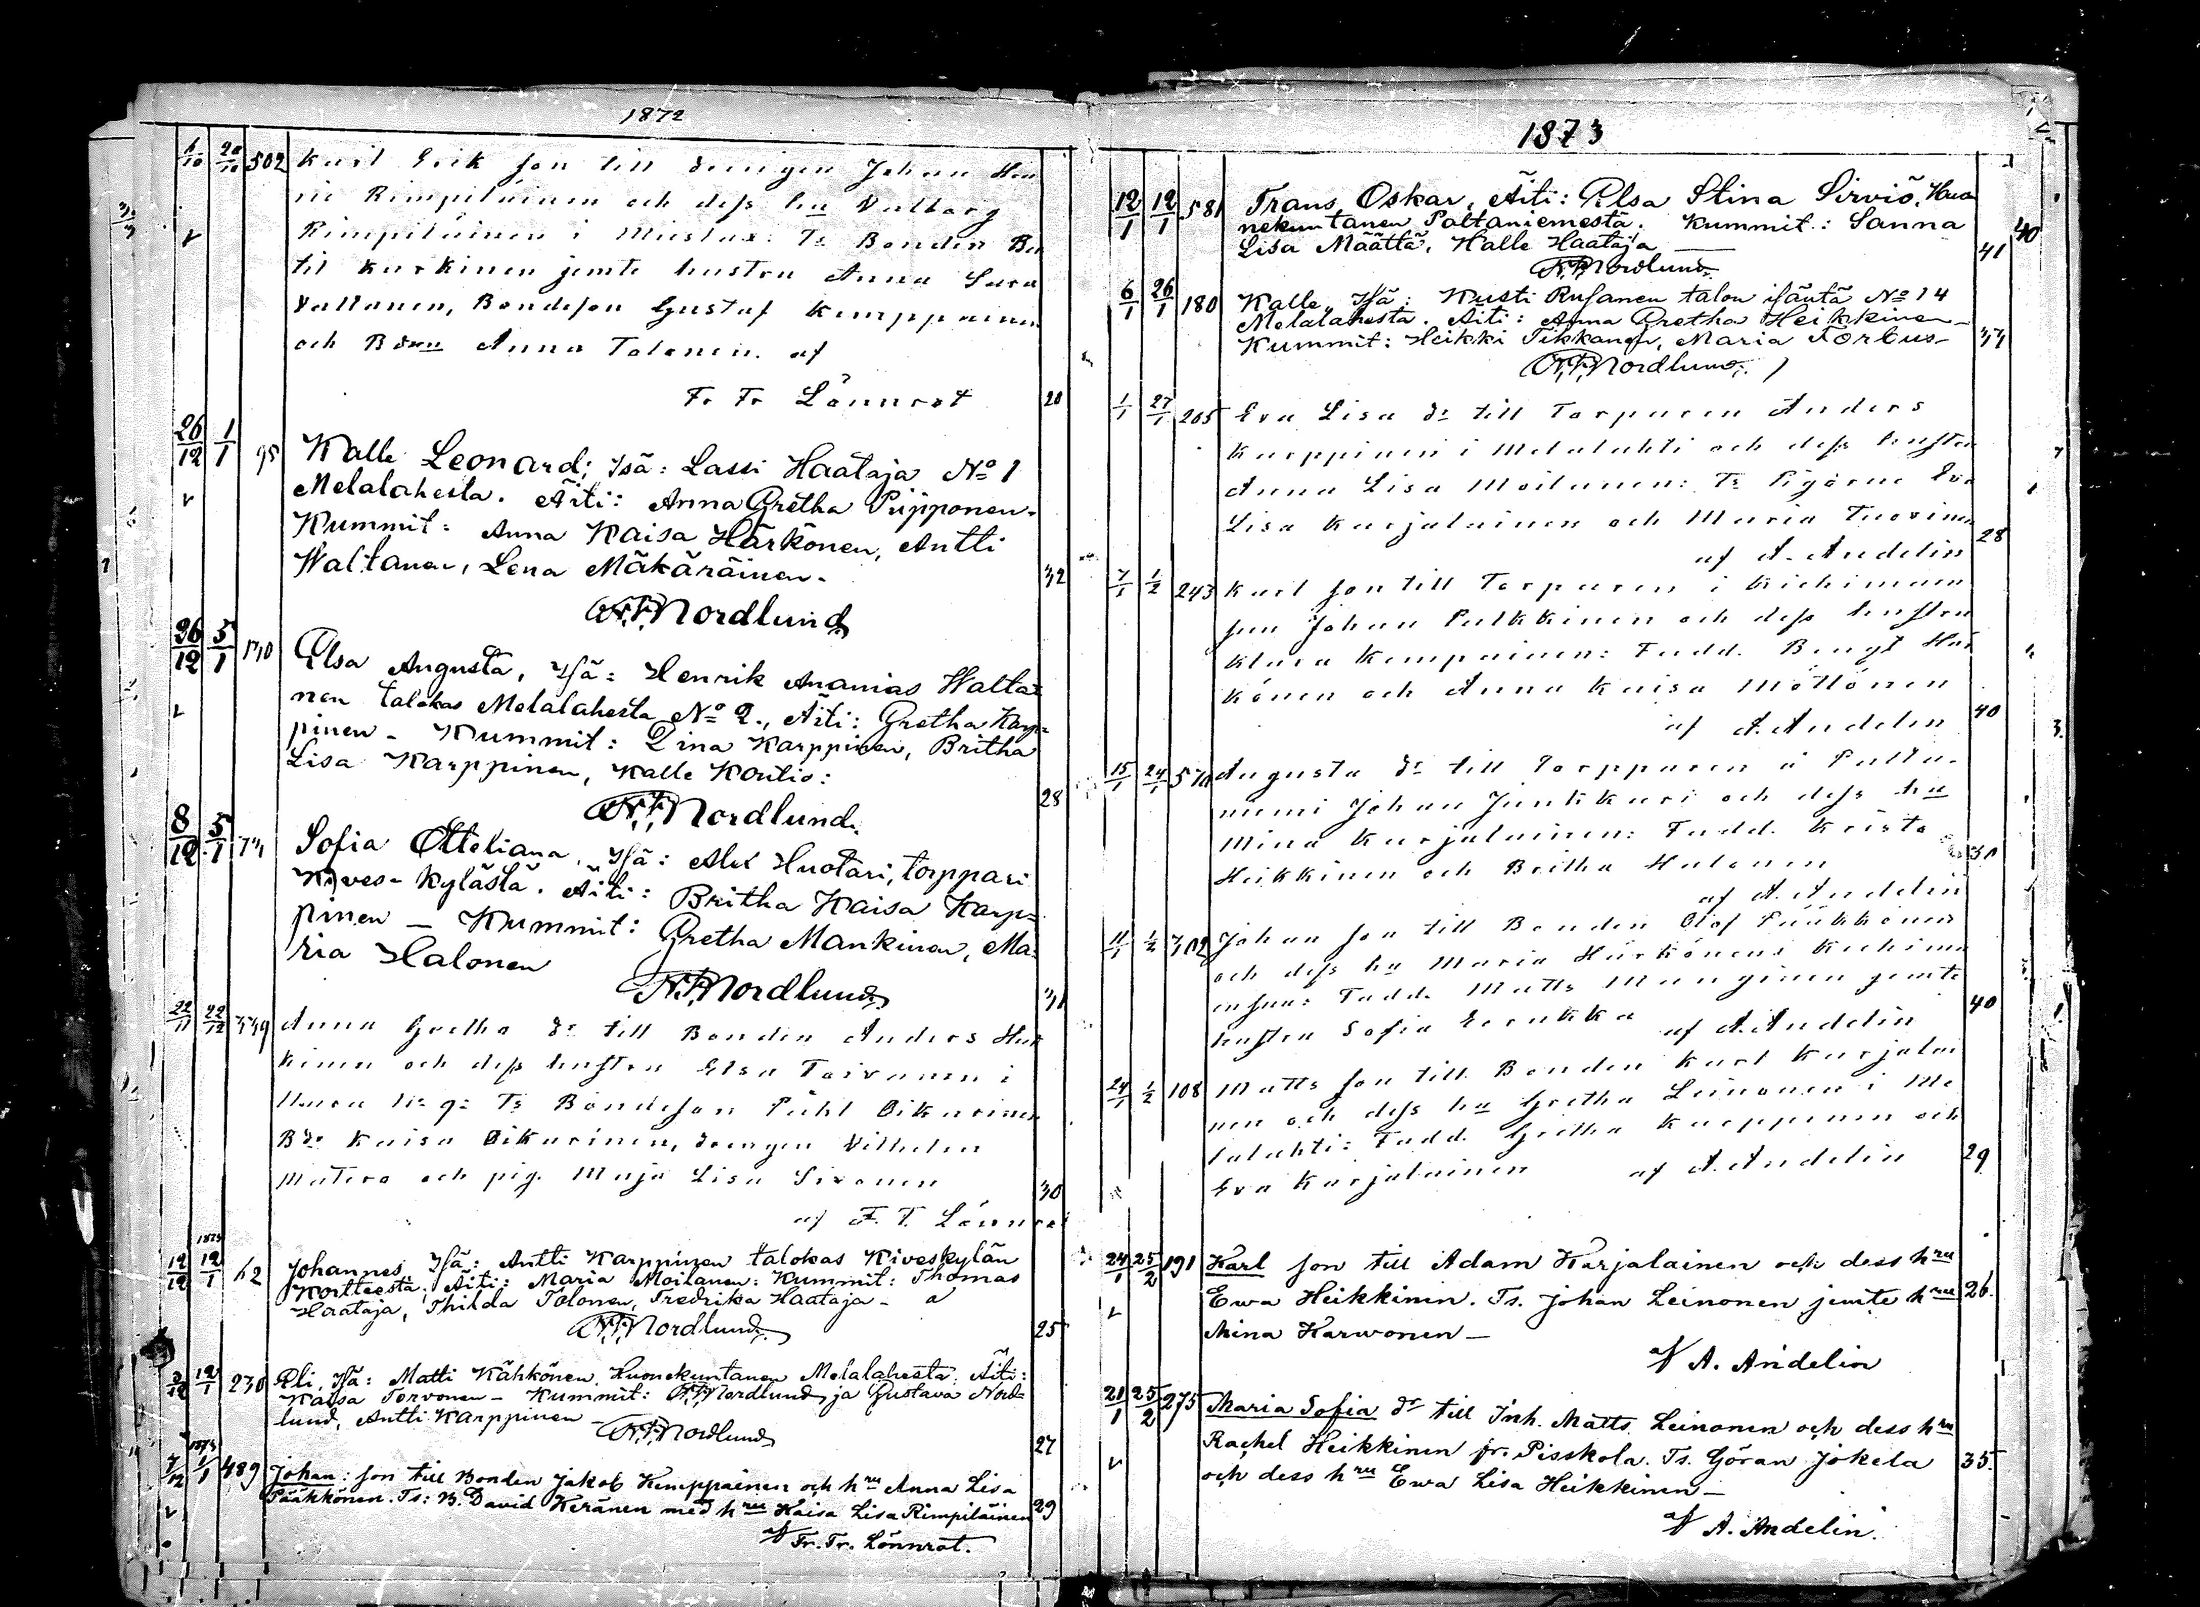 1872
1/10 20/10 502 Karl Erik son till drengen Johan Hen
ric Rimpiläinen och dess hu Valborg
Rimpiläinen i Mustax: Ts Bonden Ber
til Kurkinen jemte hustru Anna Sara
Valtanen, Bondeson Gustaf Kemppainen
och Bdru Anna Tolonen. af
Fr Tr Lönnrot 20
26/12 1/1 95 Kalle Leonard; Isä: Lassi Haataja No 1
Melalahesta. Äiti: Anna Gretha Piipponen.
Kummit: Anna Kaisa Härkönen, Antti
Waltanen, Lena Mäkäräinen. 32
Nordlund
26/12 5/1 Elsa Augusta, Isä: Henrik Ananias Walta=
nen talokas Melalahesta No 2., Äiti: Gretha Karp=
pinen - Kummit: Dina Karppinen, Britha
Lisa Karppinen, Kalle Kontio: 28
Nordlund
8/12 5/1 Sofia Otteliana, Isä: Alex Huotari, torppari
Kives-kylästä. Äiti: Britha Kaisa Karp=
pinen — Kummit: Gretha Mankinen, Ma=
ria Halonen
Nordlund 31
22/11 22/12 Anna Gretha dr till Bonden Anders
kinen och dess hustru Elsa Toivanen i
No 9: Ts Bondeson Påhl Oikarinen
Bdr Kaisa Oikarinen, drengen Vilhelm
Matero och pig. Maja Lisa Sironen 30
af F. T. Lönnrot
12/12 12/1 62 Johannes, Isä: Antti Karppinen talokas Kiveskylän
Kortteesta. Äiti: Maria Moilanen: Kummit: Thomas
Haataja, Thilda Tolonen, Fredrika Haataja -
Nordlund 25
12/1 Eli, Isä: Matti Kähkönen, Huonekuntanen Melalahesta. Äiti:
Kaisa Torvonen - Kummit: Nordlund ja Gustava Nord=
lund, Antti Karppinen -
Nordlund 27
7/12 1/1 489 Johan: son till Bonden Jakob Kemppainen och hru Anna Lisa
Pääkkönen. Ts: B. David Keränen med hru Kaisa Lisa Rimpiläinen 29
af Fr. Tr. Lönnrot.
1873
12/1 12/1 581 Frans Oskar, Äiti: Elsa Stina Sirviö, Huo
nekuntanen Paltaniemestä. Kummit: Sanna
Lisa Määttä, Kalle Haataja — 41
Nordlund
6/1 26/1 180 Kalle, Isä: Kusti Rusanen talon isäntä No 14
Melalahesta. Äiti: Anna Gretha Heikkinen -
Kummit: Heikki Tikkanen, Maria Torbus-
Nordlund
1/1 27/1 205 Eva Lisa dr till Torparen Anders
Karppinen i Melalahti och dess hustru
Anna Lisa Moilanen: Ts Pigorne Eva
Lisa Karjalainen och Maria Tuorinen 28
af A. Andelin
7/1 1/2 243 Karl son till Torparen i Kiehimäen
suu Johan Pulkkinen och dess hustru
Klara Kempainen: Fadd. Bengt Här
könen och Anna Kaisa Möttönen 40
af A. Andelin
15/1 24/1 Augusta dr till Torpparen å Palta-
niemi Johan Juntkkari och dess hu
Mina Karjalainen: Fadd. Kristo
Heikkinen och Britha Halonen
af A. Andelin
11/1 1/2 Johan son till Bonden Olof Pääkkönen
och dess hu Maria Härkönens Kiehimä
ensuu: Fadd. Matts Manginen jemte
hustru Sofia af A. Andelin 40
24/1 1/2 108 Matts son till Bonden Karl Karjalai
nen och dess hu Gretha Leinonen i Me
lalahti: Fadd. Gretha Karppinen och
Eva Karjalainen af A. Andelin 29
24/1 25/2 191 Karl son till Adam Karjalainen och dess hru
Ewa Heikkinen. Ts. Johan Leinonen jemte hru 26.
Mina Karwonen —
af A. Andelin
21/1 25/2 275 Maria Sofia dr till Inh. Matts Leinonen och dess hru
Rachel Heikkinen fr. Pisskola. Ts. Göran Jokela 35.
och dess hru Ewa Lisa Heikkinen —
af A. Andelin.